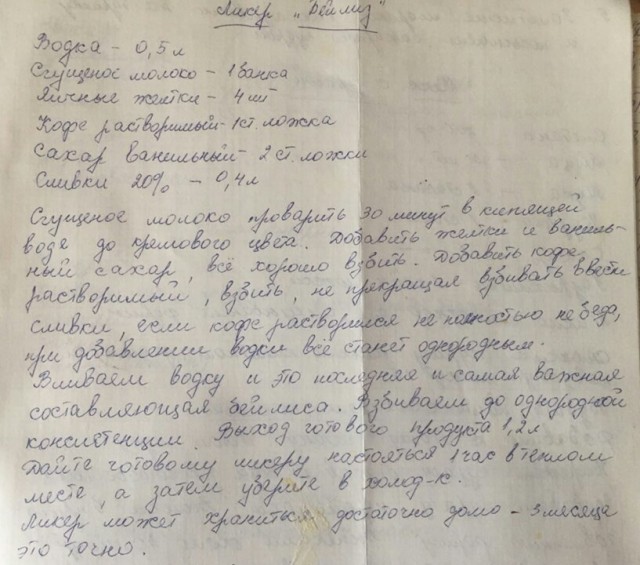 Ликер "Бейлиз"
Водка - 0,5 л
Сгущеное молоко - 1 банка
Яичные желтки - 4 шт
Кофе растворимый - 1 ст. ложка
Сахар ванильный - 2 ст. ложки
Сливки 20% - 0,4 л
Сгущеное молоко проварить 30 минут в кипящей
воде до кремового цвета. Добавить желтки и ваниль-
ный сахар, всё хорошо взбить. Добавить кофе
растворимый, взбить, не прекращая взбивать ввести
сливки, если кофе растворился не полностью не беда,
при добавлении водки всё станет однородным.
Вливаем водку и это последняя и самая важная
составляющая бейлиса. Взбиваем до однородной
консистенции. Выход готового продукта 1,2 л
Дайте готовому ликеру настояться 1 час в теплом
месте, а затем уберите в холод-к.
Ликер может храниться достаточно долго - 3 месяца
это точно.